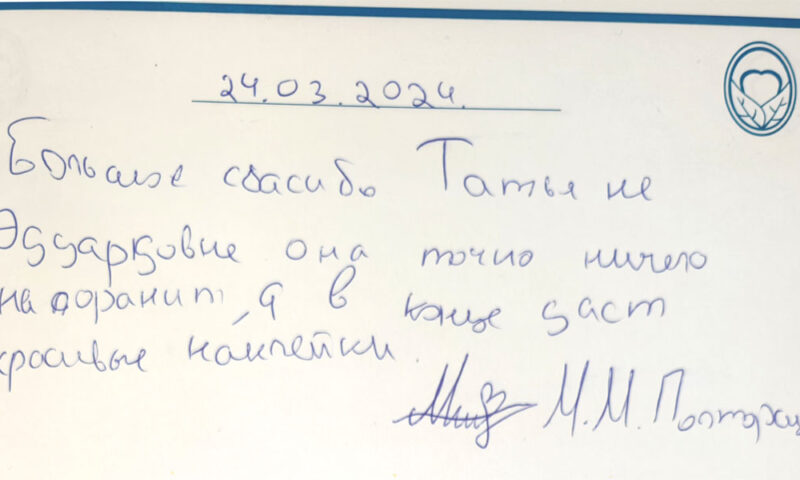 24.03.2024.
Большое спасибо Татья не
Эдуардовне она точно ничего
на поранит, а в конце даст
красивые наклейки.
М.М.